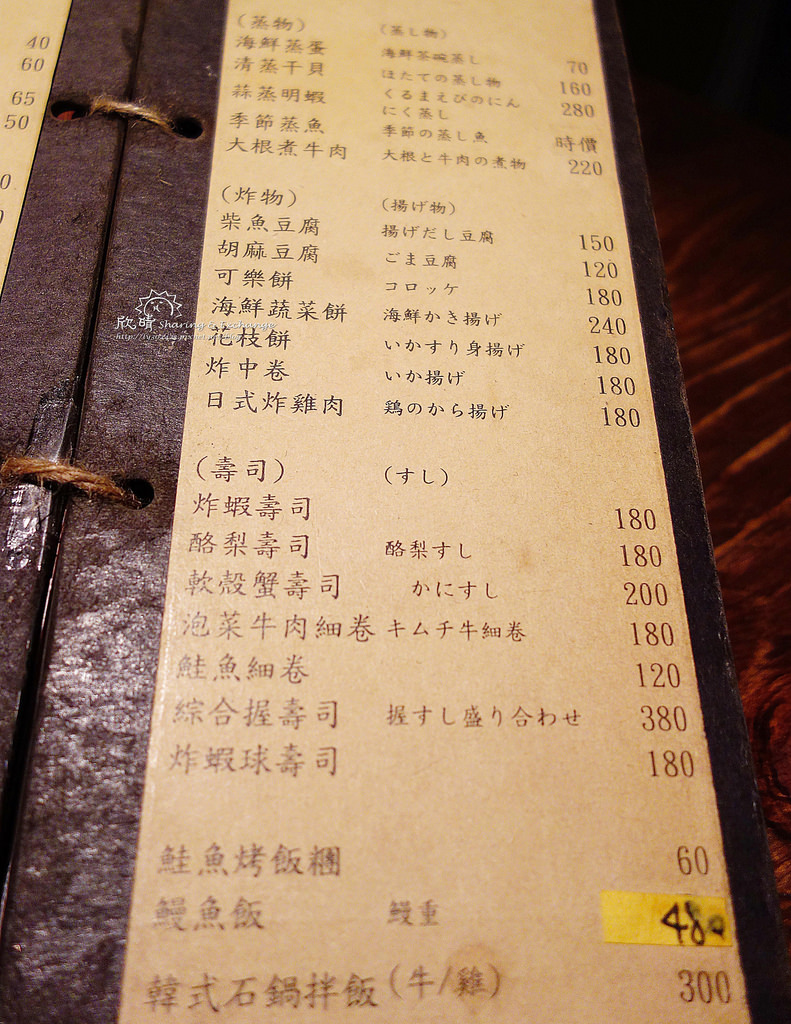 40
60
65
50
0
(蒸物) (蒸し物)
海鮮蒸蛋 海鮮茶碗蒸し 70
清蒸干貝 ほたての蒸し物 160
蒜蒸明蝦 くるまえびのにんにく蒸し 280
季節蒸魚 季節の蒸し魚 時價
大根煮牛肉 大根と牛肉の煮物 220
(炸物) (揚げ物)
柴魚豆腐 揚げだし豆腐 150
胡麻豆腐 ごま豆腐 120
可樂餅 コロッケ 180
海鮮蔬菜餅 海鮮かき揚げ 240
花枝餅 いかすり身揚げ 180
炸中卷 いか揚げ 180
日式炸雞肉 鶏のから揚げ 180
欣晴 Sharing & Exchange
(壽司) (すし)
炸蝦壽司 180
酪梨壽司 酪梨すし 180
軟殼蟹壽司 かにすし 200
泡菜牛肉細卷 キムチ牛細卷 180
鮭魚細卷 120
綜合握壽司 握すし盛り合わせ 380
炸蝦球壽司 180
鮭魚烤飯糰 60
鰻魚飯 鰻重 480
韓式石鍋拌飯(牛/雞) 300